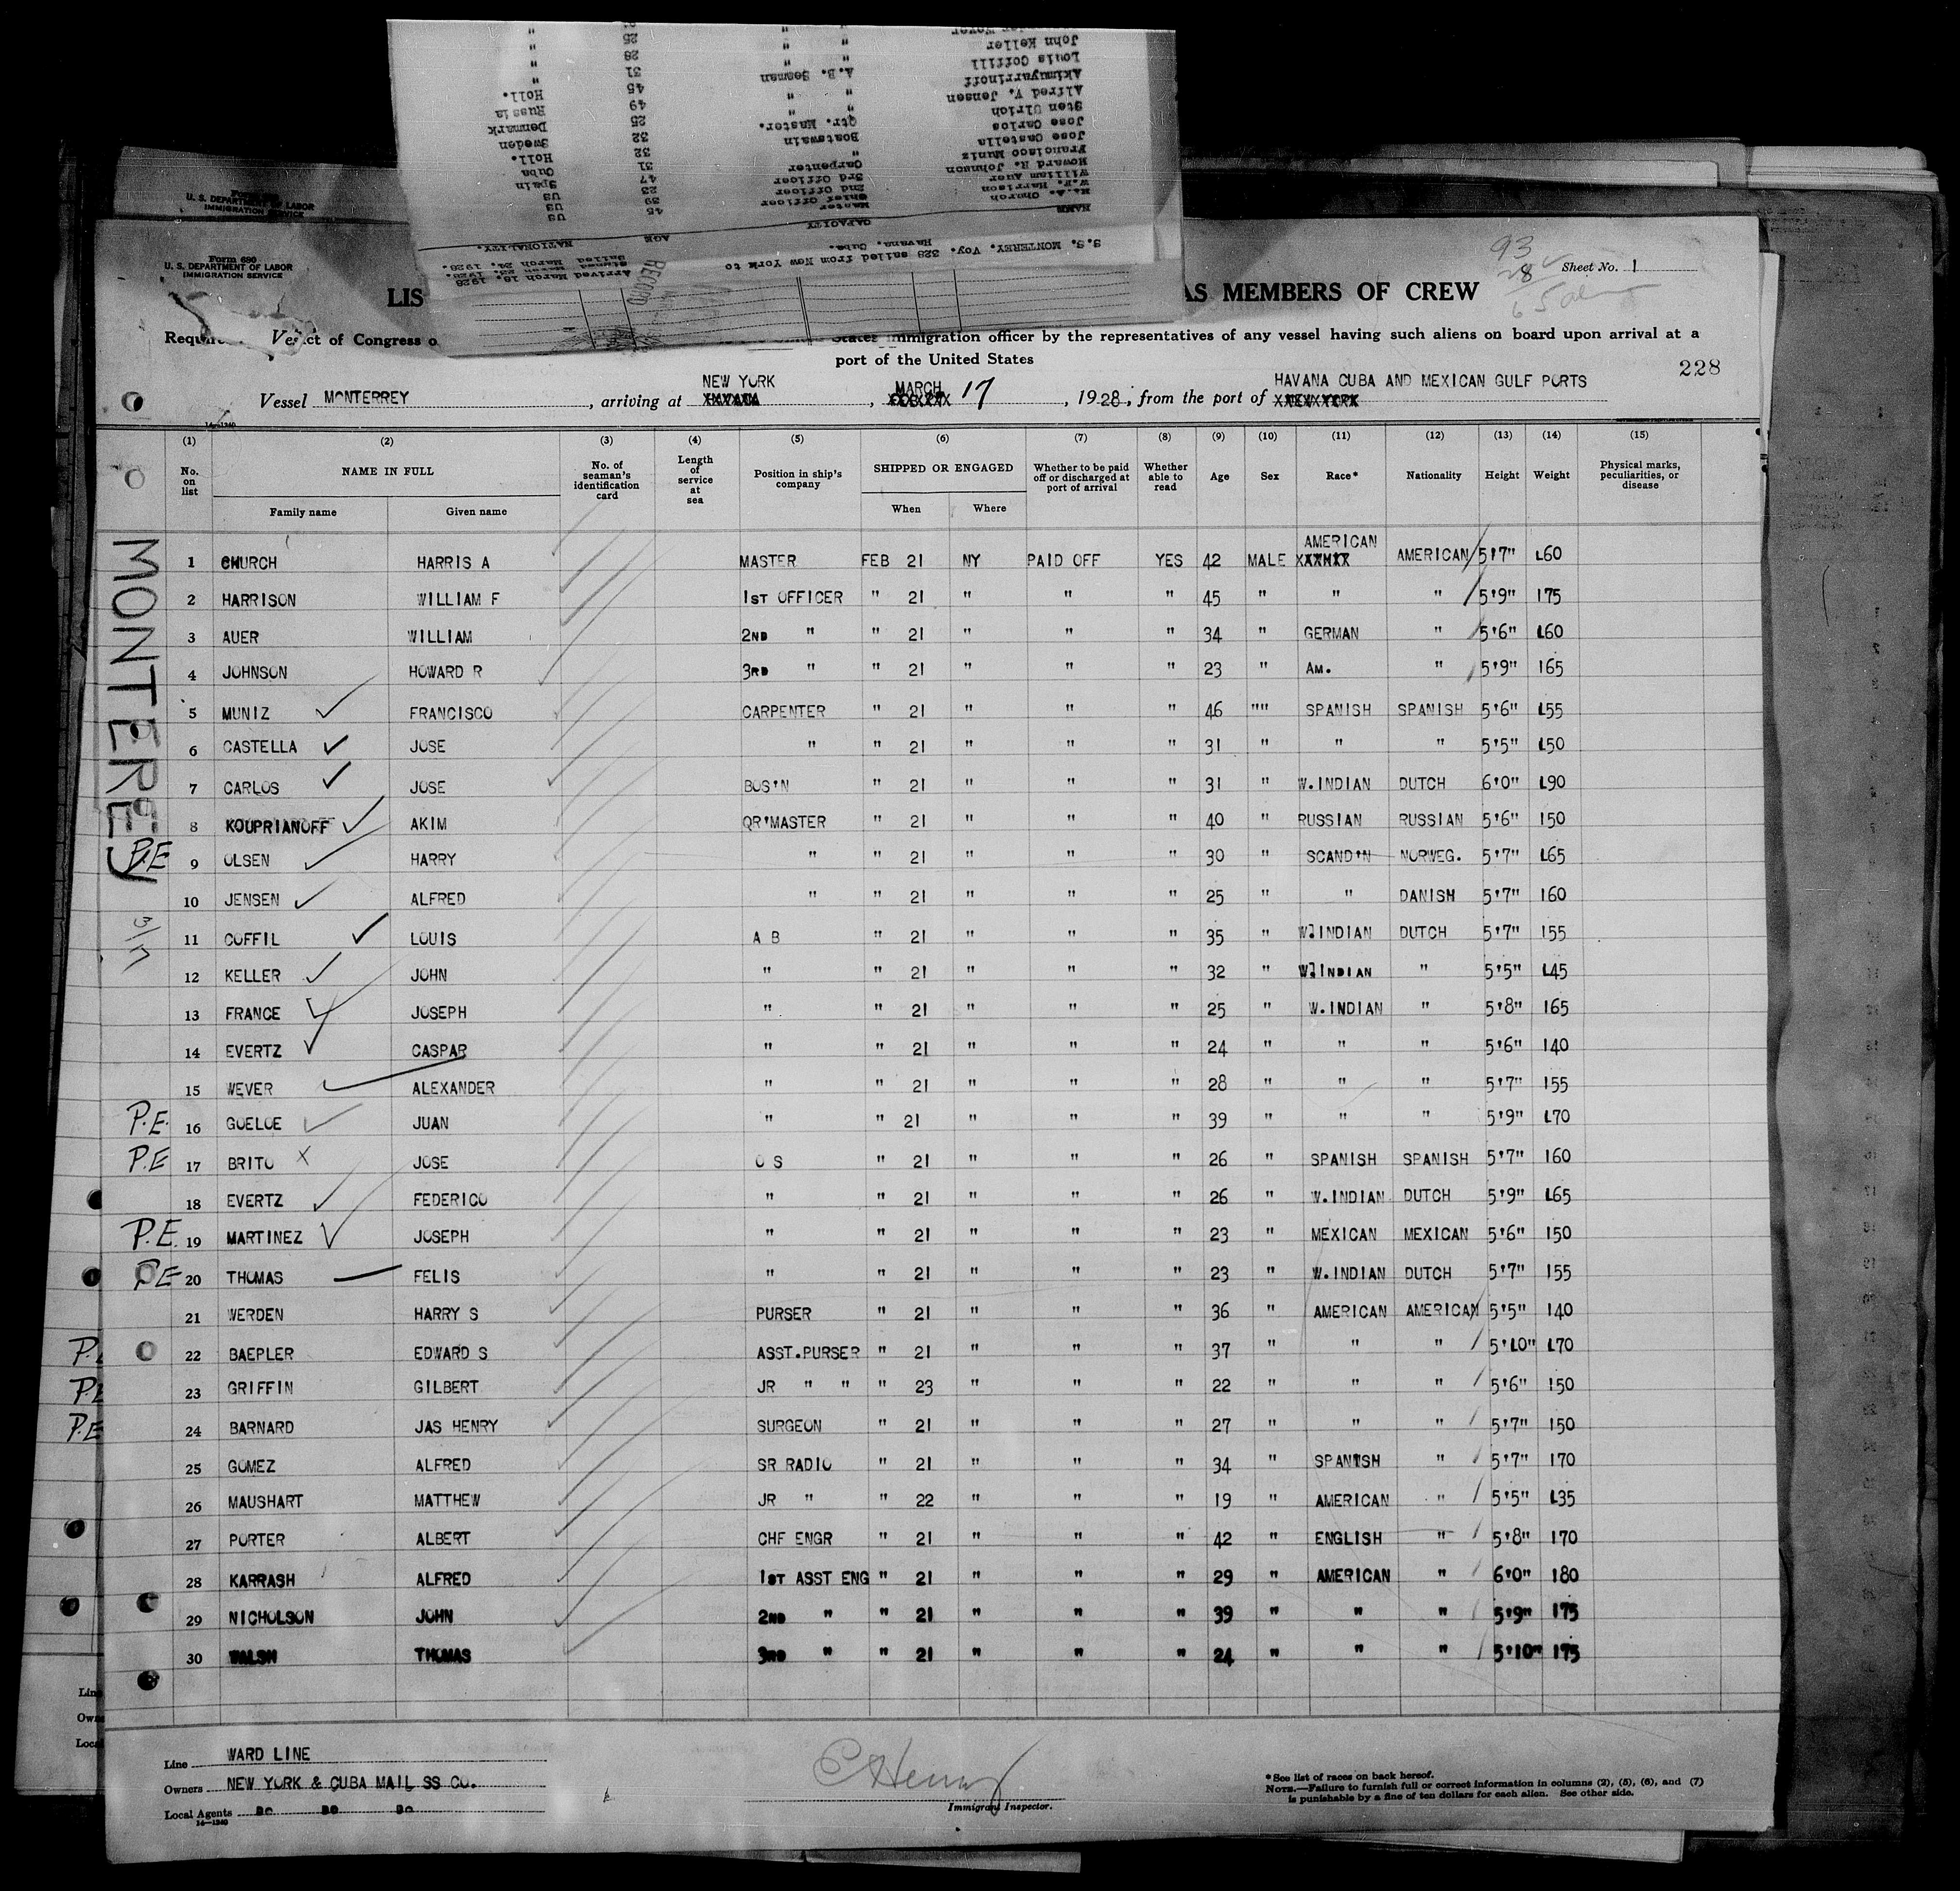 John Keller " " 25 "
Louis Coffill " " 28 "
Akimuyarrinoff A.B. Seaman 31 "
Alfred V. Jensen " " 45 Holl.
Sten Ulrich " 49 Russia
Jose Carlos Qtr. Master. 25 Denmark
Jose Castella Boatswain 32 Sweden
Francisco Muniz " 32 Holl.
Howard R. Johnson Carpenter 31 Cuba
William Auer 3rd Officer 47 Spain
W.F. Harrison 2nd Officer 23 US
H.A. Church Chief Officer 39 US
Master 45 US
NAME CAPACITY AGE NATIONALITY.
S.S. MONTEREY. Voy. 328 sailed from New York to
Havana. Cuba.
Arrived March 18. 1928.
Signed March 23. 1928.
Sailed March 24. 1928.
RECORD
Form 680
U. S. DEPARTMENT OF LABOR
IMMIGRATION SERVICE
Form 680
U. S. DEPARTMENT OF LABOR
IMMIGRATION SERVICE
93
28
65 al
Sheet No. 1
LIS AS MEMBERS OF CREW
Requir Ves ct of Congress o States immigration officer by the representatives of any vessel having such aliens on board upon arrival at a
port of the United States
228
Vessel MONTERREY , arriving at NEW YORK , MARCH 17 , 1928 , from the port of HAVANA CUBA AND MEXICAN GULF PORTS
(1) (2) (3) (4) (5) (6) (7) (8) (9) (10) (11) (12) (13) (14) (15)
No. on list NAME IN FULL Family name Given name No. of seaman's identification card Length of service at sea Position in ship's company SHIPPED OR ENGAGED When Where Whether to be paid off or discharged at port of arrival Whether able to read Age Sex Race* Nationality Height Weight Physical marks, peculiarities, or disease
MONTEREY
3/17
1 CHURCH HARRIS A MASTER FEB 21 NY PAID OFF YES 42 MALE AMERICAN AMERICAN 5'7" 160
2 HARRISON WILLIAM F 1ST OFFICER " 21 " " " 45 " " " 5'9" 175
3 AUER WILLIAM 2ND " " 21 " " " 34 " GERMAN " 5'6" 160
4 JOHNSON HOWARD R 3RD " " 21 " " " 23 " AM. " 5'9" 165
5 MUNIZ FRANCISCO CARPENTER " 21 " " " 46 "" SPANISH SPANISH 5'6" 155
6 CASTELLA JOSE " " 21 " " " 31 " " " 5'5" 150
7 CARLOS JOSE BOS'N " 21 " " " 31 " W.INDIAN DUTCH 6'0" 190
8 KOUPRIANOFF AKIM QR'MASTER " 21 " " " 40 " RUSSIAN RUSSIAN 5'6" 150
P.E 9 OLSEN HARRY " " 21 " " " 30 " SCAND'N NORWEG. 5'7" 165
10 JENSEN ALFRED " " 21 " " " 25 " " DANISH 5'7" 160
11 COFFIL LOUIS A B " 21 " " " 35 " W.INDIAN DUTCH 5'7" 155
12 KELLER JOHN " " 21 " " " 32 " W.INDIAN " 5'5" 145
13 FRANCE JOSEPH " " 21 " " " 25 " W.INDIAN " 5'8" 165
14 EVERTZ CASPAR " " 21 " " " 24 " " " 5'6" 140
15 WEVER ALEXANDER " " 21 " " " 28 " " " 5'7" 155
P.E. 16 GOELOE JUAN " " 21 " " " 39 " " " 5'9" 170
P.E 17 BRITO X JOSE O S " 21 " " " 26 " SPANISH SPANISH 5'7" 160
18 EVERTZ FEDERICO " " 21 " " " 26 " W.INDIAN DUTCH 5'9" 165
P.E. 19 MARTINEZ JOSEPH " " 21 " " " 23 " MEXICAN MEXICAN 5'6" 150
P.E 20 THOMAS FELIS " " 21 " " " 23 " W.INDIAN DUTCH 5'7" 155
21 WERDEN HARRY S PURSER " 21 " " " 36 " AMERICAN AMERICAN 5'5" 140
P.E 22 BAEPLER EDWARD S ASST.PURSER " 21 " " " 37 " " " 5'10" 170
P.E 23 GRIFFIN GILBERT JR " " " 23 " " " 22 " " " 5'6" 150
P.E 24 BARNARD JAS HENRY SURGEON " 21 " " " 27 " " " 5'7" 150
25 GOMEZ ALFRED SR RADIO " 21 " " " 34 " SPANISH " 5'7" 170
26 MAUSHART MATTHEW JR " " 22 " " " 19 " AMERICAN " 5'5" 135
27 PORTER ALBERT CHF ENGR " 21 " " " 42 " ENGLISH " 5'8" 170
28 KARRASH ALFRED 1ST ASST ENG " 21 " " " 29 " AMERICAN " 6'0" 180
29 NICHOLSON JOHN 2ND " " 21 " " " 39 " " " 5'9" 175
30 WALSH THOMAS 3RD " " 21 " " " 24 " " " 5'10" 175
Lin
Own
Local
Line WARD LINE
Owners NEW YORK & CUBA MAIL SS CO.
Local Agents DO DO DO
14—1240
C Henry
Immigrant Inspector.
*See list of races on back hereof.
NOTE.—Failure to furnish full or correct information in columns (2), (5), (6), and (7)
is punishable by a fine of ten dollars for each alien. See other side.